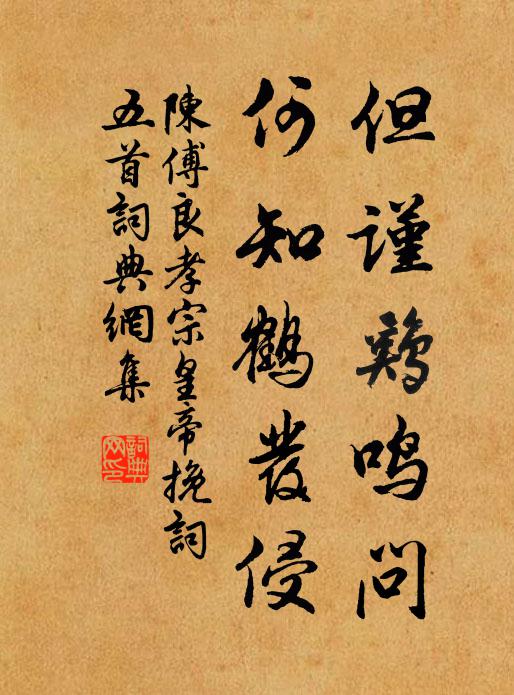 但謹鷄鳴問
何知鶴發侵
陳傅良孝宗皇帝挽詞
五首詞典網集
詞典網印